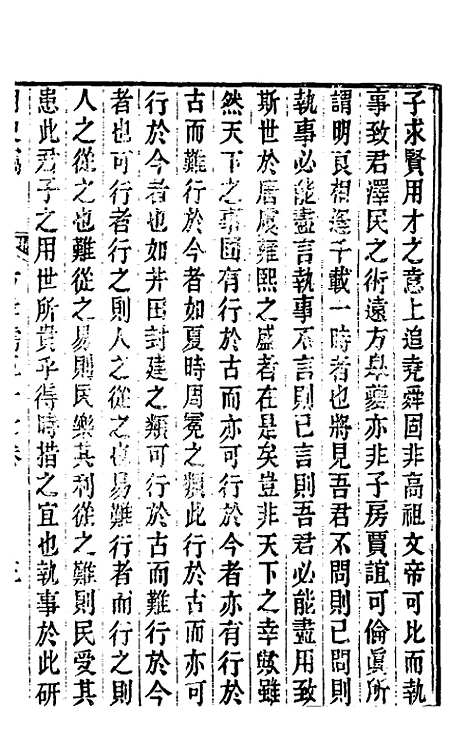 子求賢用才之意上追堯舜固非高祖文帝可比而執
事致君澤民之術遠方臯夔亦非子房賈誼可倫眞所
謂明良相逢千載一時者也將見吾君不問則已問則
執事必能盡言執事不言則已言則吾君必能盡用致
斯世於唐虞雍熙之盛者在是矣豈非天下之幸歟雖
然天下之事固有行於古而亦可行於今者亦有行於
古而難行於今者如夏時周冕之類此行於古而亦可
行於今者也如井田封建之類可行於古而難行於今
者也可行者行之則人之從之也易難行者而行之則
人之從之也難從之易則民樂其利從之難則民受其
患此君子之用世所貴乎得時措之宜也執事於此研